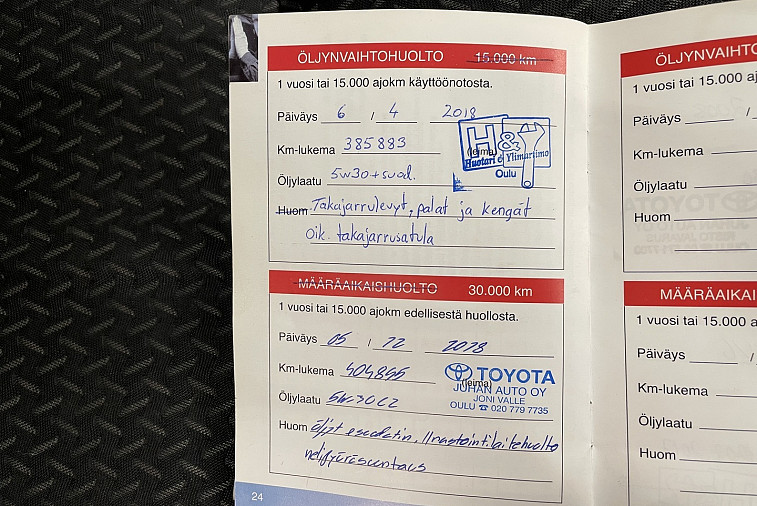 ÖLJYNVAIHTOHUOLTO 15.000 km
1 vuosi tai 15.000 ajokm käyttöönotosta.
Päiväys 6 / 4 2018
Km-lukema 385883
H &
(leima)
Huotari & Ylimartimo
Oulu
Öljylaatu 5w30+suod.
Huom. Takajarrulevyt, palat ja kengät
Oik. takajarrusatula
MÄÄRÄAIKAISHUOLTO 30.000 km
1 vuosi tai 15.000 ajokm edellisestä huollosta.
Päiväys 05 / 12 2018
Km-lukema 404895
TOYOTA
(leima)
JUHAN AUTO OY
JONI VALLE
OULU ☎ 020 779 7735
Öljylaatu 5W30C2
Huom öljyt esuodatin, Ilmastointilaitehuolto
nelipyöräsuntaus
24
ÖLJYNVAIHTO
1 vuosi tai 15.000 a
Päiväys /
Km-lukema
Öljylaatu
Huom
MÄÄRÄAIKAI
1 vuosi tai 15.000 a
Päiväys /
Km-lukema
Öljylaatu
Huom